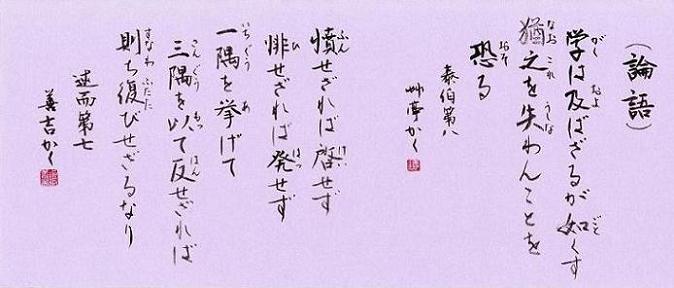 （論語）
学は及ばざるが如くす
猶之を失わんことを
恐る
泰伯第八
艸亭かく
憤せざれば啓せず
悱せざれば発せず
一隅を挙げて
三隅を以て反せざれば
則ち復びせざるなり
述而第七
善吉かく